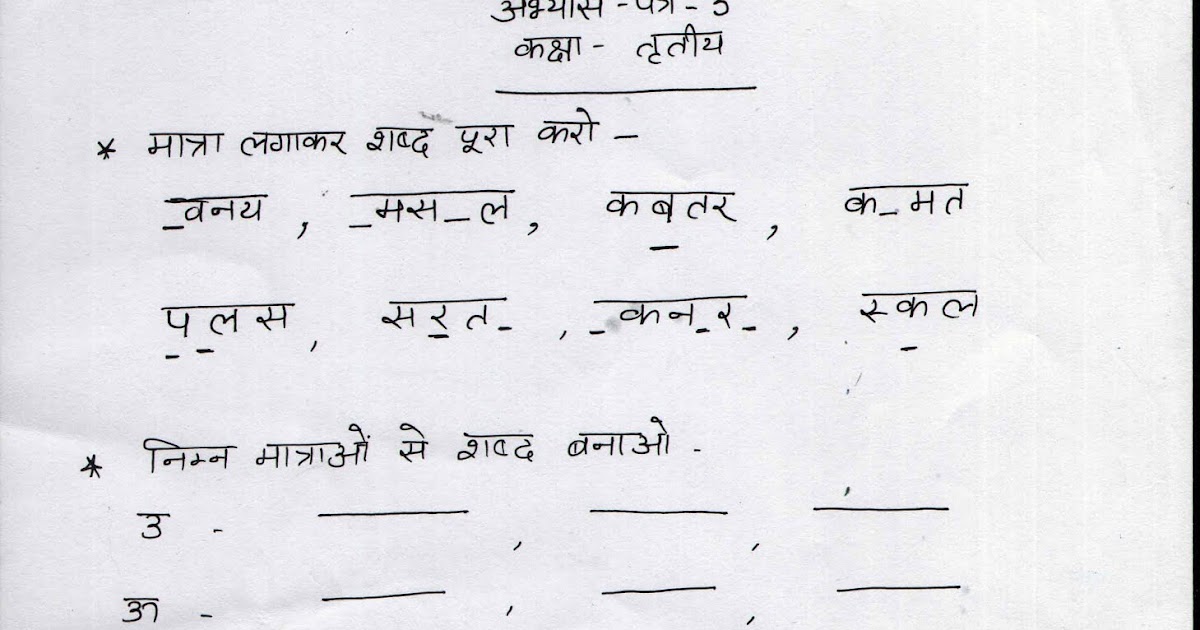 अभ्यास - पत्र -
कक्षा - तृतीय
* मात्रा लगाकर शब्द पूरा करो -
_वनय , _मस_ल , कब_तर , क_मत
प_ल_स , सर_त_ , _कन_र_ , स्क_ल
* निम्न मात्राओं से शब्द बनाओ -
उ - ____ , ____ , ____
ऊ - ____ , ____ , ____